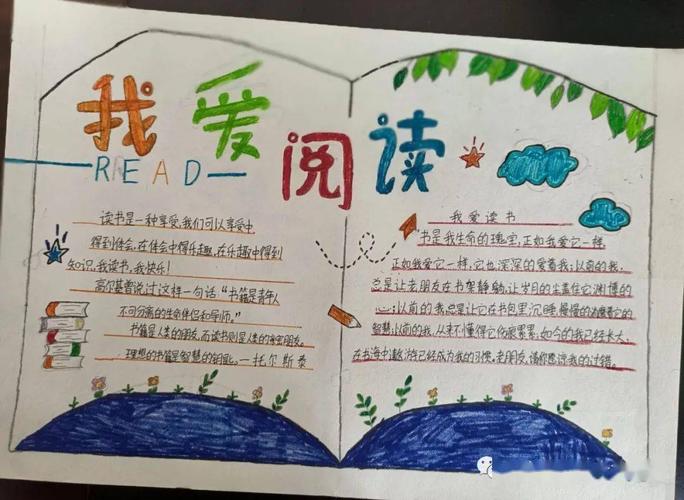 我爱阅读
READ
读书是一种享受,我们可以享受中
得到体会,在体会中得乐趣,在乐趣中得到
知识,我读书,我快乐!
高尔基曾说过这样一句话:“书籍是青年人
不可分离的生命伴侣和导师。”
书籍是人类的朋友,而读书则是人类的亲密朋友。
理想的书籍是智慧的钥匙。—托尔斯泰
我爱读书
书是我生命的瑰宝,正如我爱它一样
正如我爱它一样,它也深深的爱着我;以前的我,
总是让老朋友在书架静躺,让岁月的尘盖住它渊博的
心;以前的我,总是让它在书包里沉睡,慢慢的
智慧;以前的我,从来不懂得它伤痕累累。如今的我已经长大,
在书海中遨游已经成为我的习惯。老朋友,请你原谅我的过错。